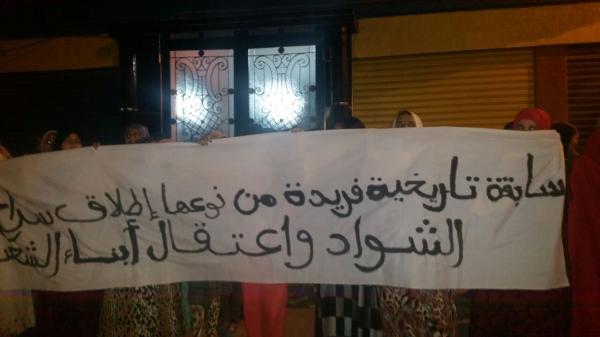 سابقة تاريخية فريدة من نوعها إطلاق سراح
الشواد واعتقال أبناء الشعب